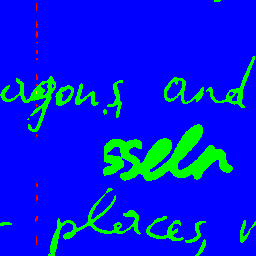 agons and
sseln
- places,